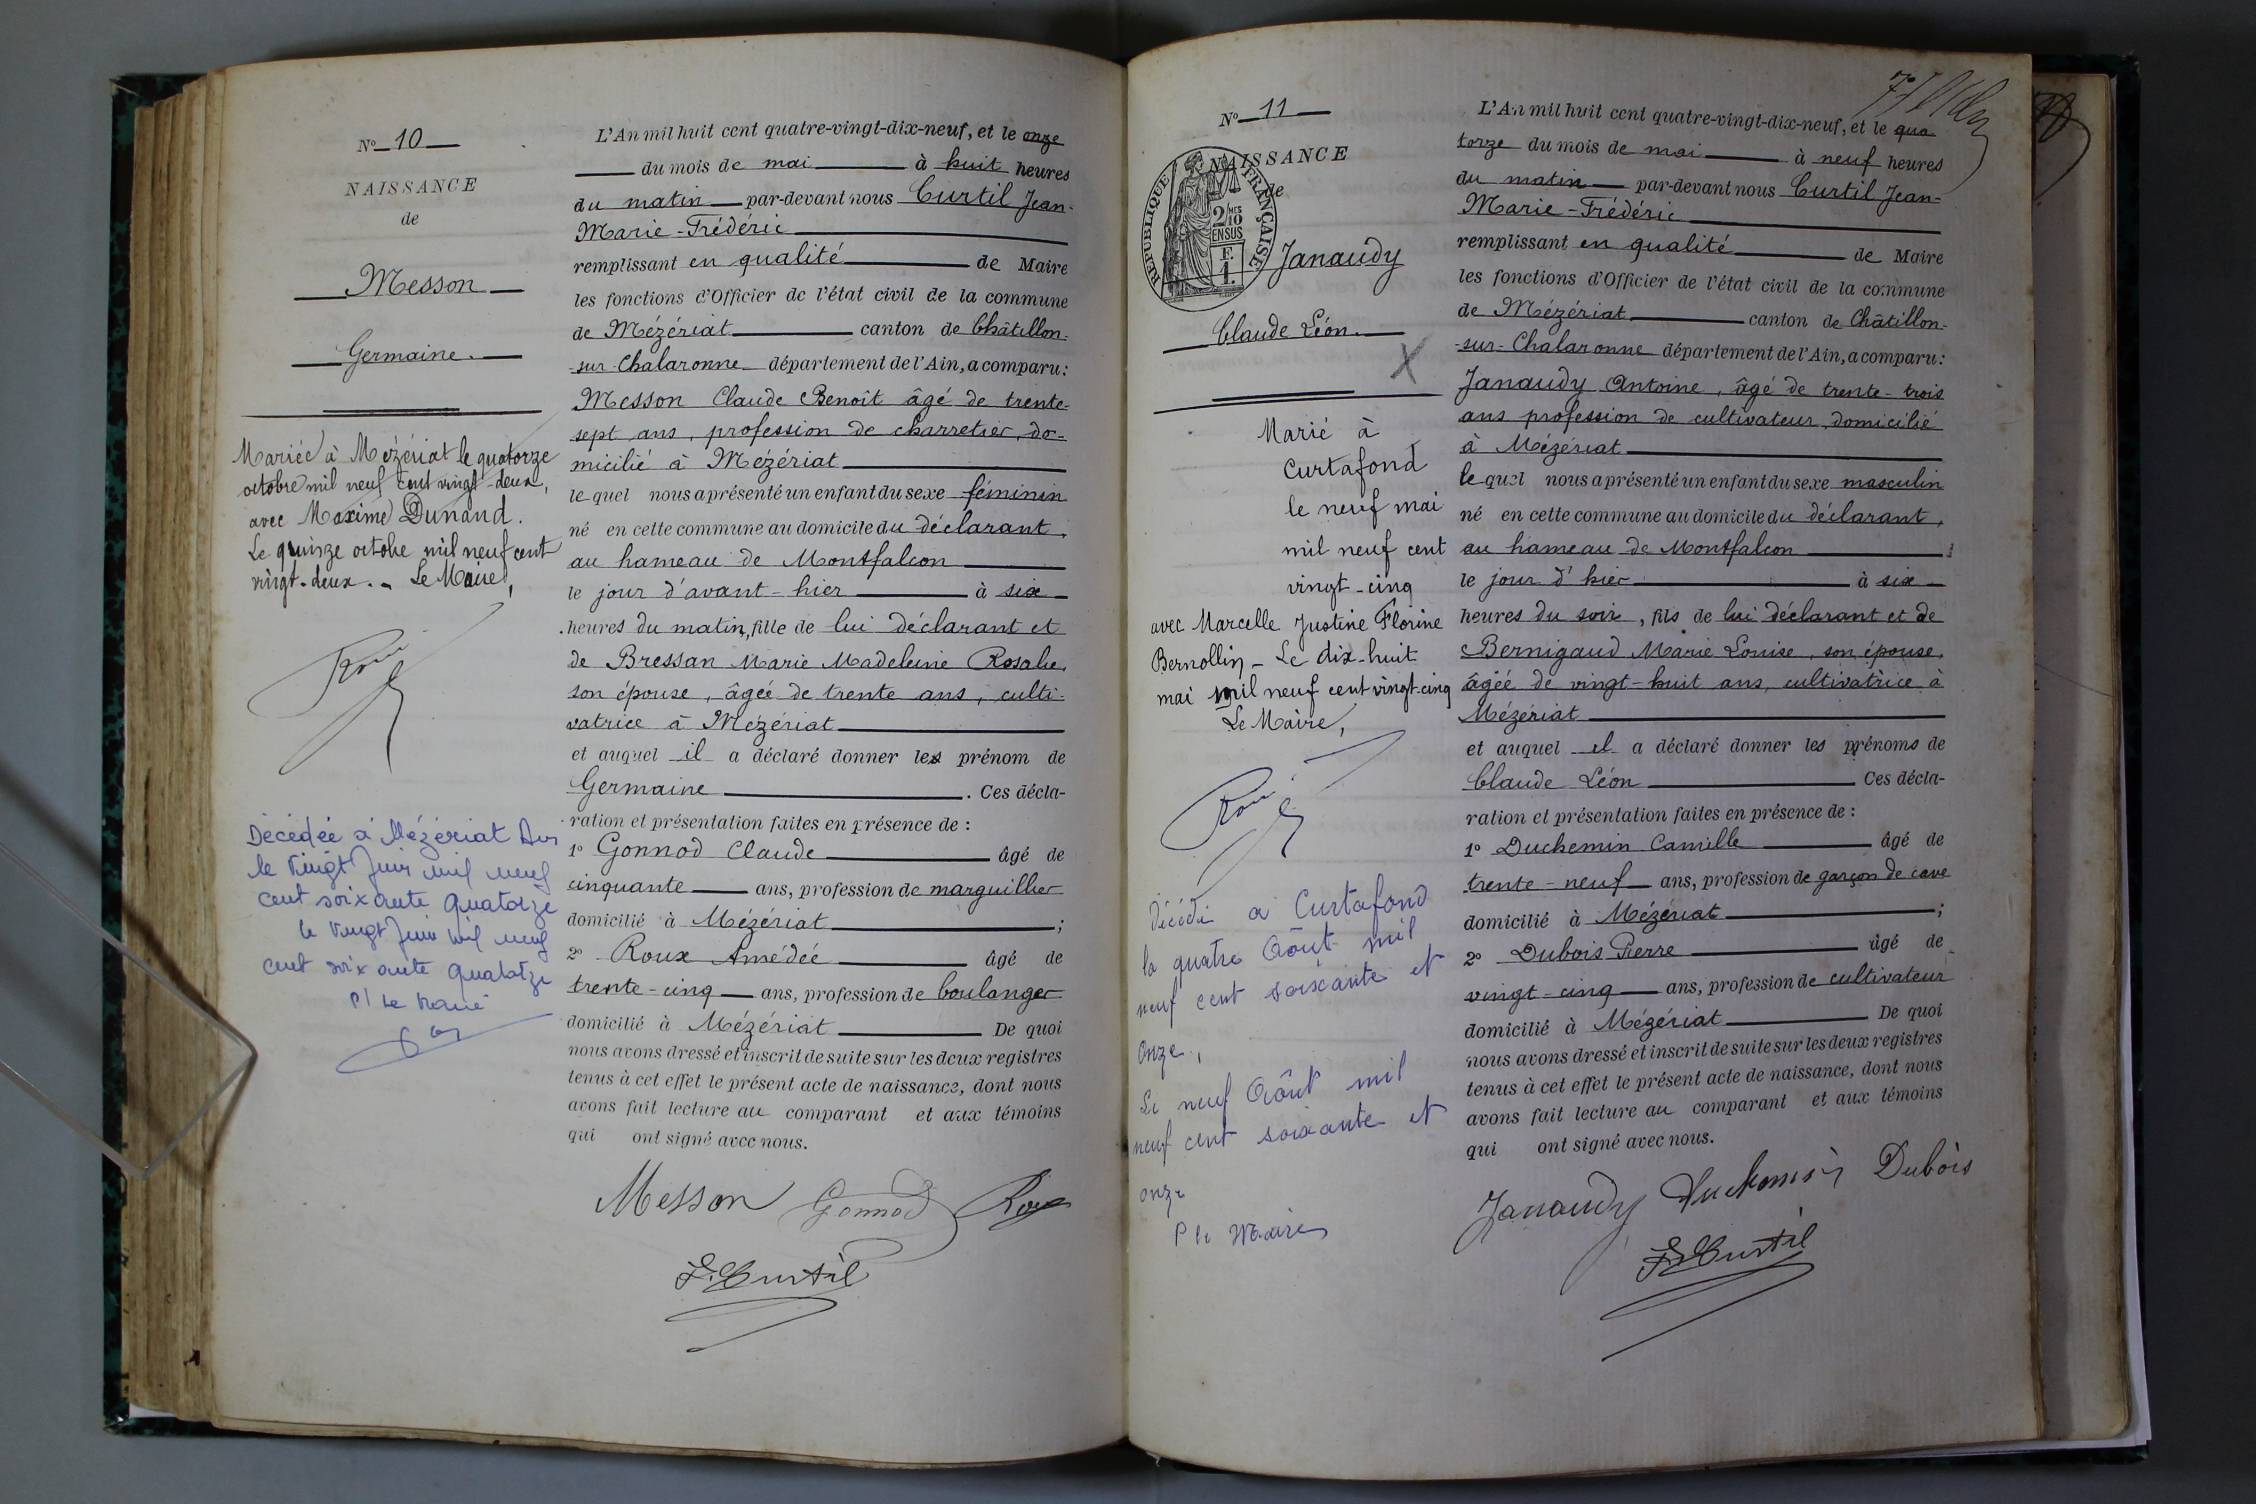 N° 10
NAISSANCE
de
Messon
Germaine.
Mariée à Mézériat le quatorze
octobre mil neuf cent vingt-deux,
avec Maxime Dunand.
Le quinze octobre mil neuf cent
vingt-deux. - Le Maire,
Décédée à Mézériat Ain
le vingt Juin mil neuf
cent soixante quatorze
le vingt Juin mil neuf
cent soixante quatorze
P/ Le Maire
L'An mil huit cent quatre-vingt-dix-neuf, et le onze
du mois de mai à huit heures
du matin par-devant nous Curtil Jean-
Marie-Frédéric
remplissant en qualité de Maire
les fonctions d'Officier de l'état civil de la commune
de Mézériat canton de Châtillon-
-sur-Chalaronne département de l'Ain, a comparu:
Messon Claude Benoît âgé de trente-
sept ans, profession de charretier, do-
micilié à Mézériat
lequel nous a présenté un enfant du sexe féminin
né en cette commune au domicile du déclarant,
au hameau de Montfalcon
le jour d'avant-hier à six
heures du matin, fille de lui déclarant et
de Bressan Marie Madeleine Rosalie,
son épouse, âgée de trente ans, culti-
vatrice à Mézériat
et auquel il a déclaré donner les prénom de
Germaine . Ces décla-
ration et présentation faites en présence de :
1° Gonnod Claude âgé de
cinquante ans, profession de marguillier
domicilié à Mézériat ;
2° Roux Amédée âgé de
trente-cinq ans, profession de boulanger
domicilié à Mézériat De quoi
nous avons dressé et inscrit de suite sur les deux registres
tenus à cet effet le présent acte de naissance, dont nous
avons fait lecture au comparant et aux témoins
qui ont signé avec nous.
Messon Gonnod Roux
F. Curtil
N° 11
NAISSANCE
de
RÉPUBLIQUE FRANÇAISE
2/10 MES
EN SUS
F.
1.
Janaudy
Claude Léon.
X
Marié à
Curtafond
le neuf mai
mil neuf cent
vingt-cinq
avec Marcelle Justine Florine
Bernollin - Le dix-huit
mai mil neuf cent vingt-cinq
Le Maire,
Décédé à Curtafond
le quatre Août mil
neuf cent soixante et
onze,
Le neuf Août mil
neuf cent soixante et
onze
P le Maire
L'An mil huit cent quatre-vingt-dix-neuf, et le qua
torze du mois de mai à neuf heures
du matin par-devant nous Curtil Jean-
Marie-Frédéric
remplissant en qualité de Maire
les fonctions d'Officier de l'état civil de la commune
de Mézériat canton de Châtillon-
-sur-Chalaronne département de l'Ain, a comparu:
Janaudy Antoine, âgé de trente-trois
ans profession de cultivateur, domicilié
à Mézériat
lequel nous a présenté un enfant du sexe masculin
né en cette commune au domicile du déclarant,
au hameau de Montfalcon
le jour d'hier à six
heures du soir, fils de lui déclarant et de
Bernigaud Marie Louise, son épouse,
âgée de vingt-huit ans, cultivatrice à
Mézériat
et auquel il a déclaré donner les prénoms de
Claude Léon Ces décla-
ration et présentation faites en présence de :
1° Duchemin Camille âgé de
trente-neuf ans, profession de garçon de cave
domicilié à Mézériat ;
2° Dubois Pierre âgé de
vingt-cinq ans, profession de cultivateur
domicilié à Mézériat De quoi
nous avons dressé et inscrit de suite sur les deux registres
tenus à cet effet le présent acte de naissance, dont nous
avons fait lecture au comparant et aux témoins
qui ont signé avec nous.
Janaudy Duchemin Dubois
F. Curtil